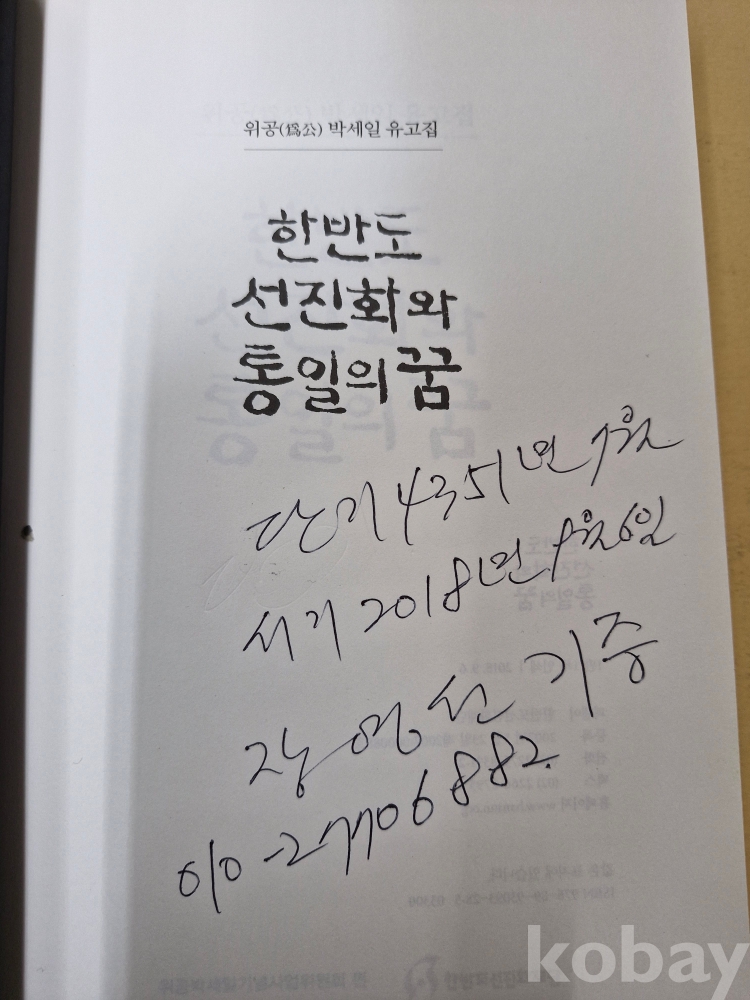 위공(爲公) 박세일 유고집
한반도
선진화와
통일의 꿈
단기 4351년 9월
서기 2018년 9월 6일
장영선 기증
010-27706882.
kobay